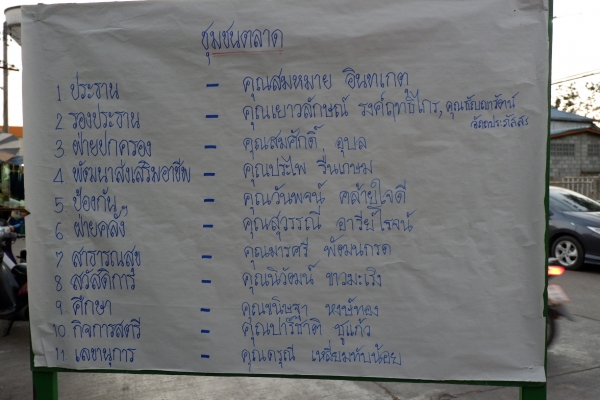 ชุมชนตลาด
1 ประธาน - คุณสมหมาย อินทเกตุ
2 รองประธาน - คุณเยาวลักษณ์ รงค์ฤทธิไกร, คุณธัญญารัตน์
3 ฝ่ายปกครอง - คุณสมศักดิ์ อุบล
4 พัฒนาส่งเสริมอาชีพ - คุณประไพ รื่นเกษม
5 ป้องกันฯ - คุณวันพจน์ คล้ายใจดี
6 ฝ่ายคลัง - คุณสุวรรณี อารีย์โรจน์
7 สาธารณสุข - คุณมารศรี พัฒนกรด
8 สวัสดิการ - คุณนิวัฒน์ ขาวมะเริง
9 ศึกษา - คุณขนิษฐา หงษ์ทอง
10 กิจการสตรี - คุณปาริชาติ ชูแก้ว
11 เลขานุการ - คุณดรุณี เหลี่ยมทับน้อย